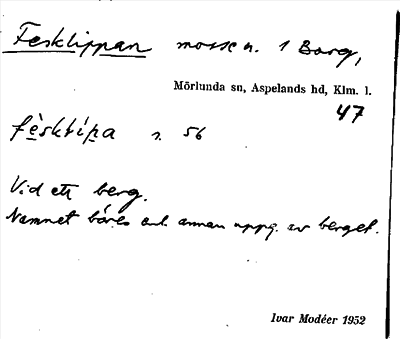 Fesklippan mosse n. 1 Borg,
Mörlunda sn, Aspelands hd, Klm. l.
47
s. 56
Vid ett berg.
Namnet bäres enl. annan uppg. av berget.
Ivar Modéer 1952